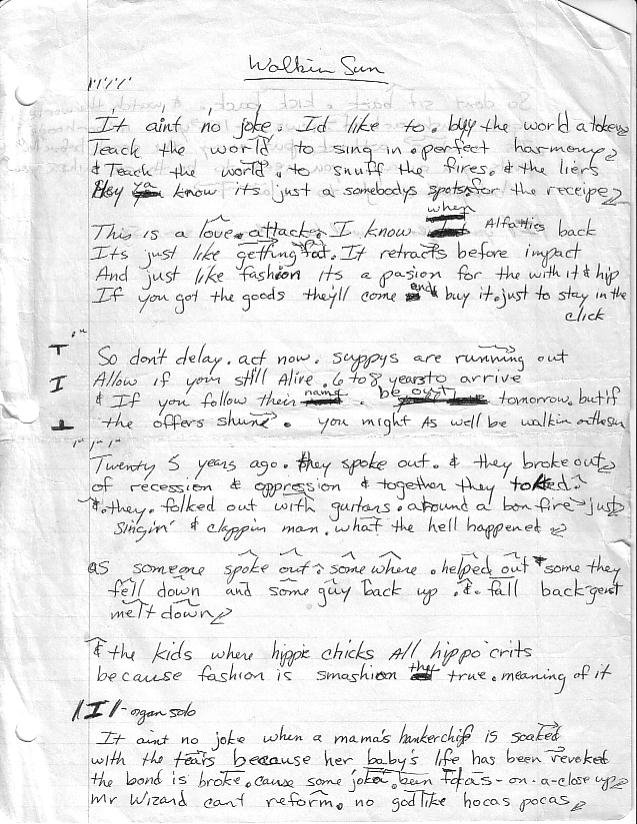 Walkin Sun
It aint no joke. I'd like to. buy the world a token
Teach the world to sing in. perfect harmony
& Teach the world. to snuff the fires. & the liers
Hey ya know its just a somebodys spots for the receipe
This is a love. attack. I know when Alfatties back
Its just like getting fat. It retracts before impact
And just like fashion its a pasion for the with it & hip
If you got the goods they'll come and buy it. just to stay in the
click
So don't delay. act now. suppys are running out
Allow if your still Alive. 6 to 8 years to arrive
& If you follow their name. be out tomorrow. but if
the offers shune. you might As well be walkin on the sun
Twenty 5 years ago. they spoke out. & they broke out
of recession & oppression & together they toked.
&. they. folked out with guitars. around a bon fire just
singin' & clappin man. what the hell happened
as someone spoke out. some where. helped out some they
fell down and some guy back up. &. fall back
melt down
& the kids where hippie chicks All hippo crits
because fashion is smashion the true. meaning of it
I - organ solo
It aint no joke when a mama's hankerchip is soaked
with the tears because her baby's life has been revoked
the bond is broke. cause some joka. been - on - a - close up
Mr Wizard cant reform. no god like hocas pocas